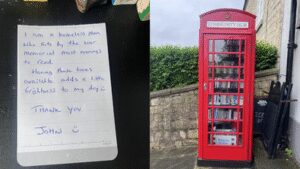 I am a homeless man
who sits by the war
memorial most mornings
to read.
Having these books
available adds a little
brightness to my day
Thank you
John